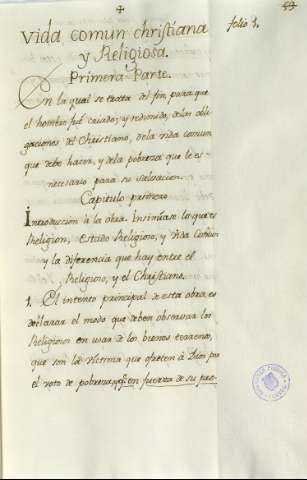 ✝
59
folio 1.
Vida comun christiana
y Religiosa.
Primera Parte.
En la qual se trata del fin, para que
el hombre fué criado, y redimido, de las obli-
gaciones del Christiano, de la vida comun
que debe hacer, y de la pobreza que le es
necesario para su salvacion.
Capitulo primero
Introduccion à la obra. Insinúase lo que es
Religion, Estado Religioso, y Vida Comun
y la diferencia que hay entre el
Religioso, y el Christiano.
1. El intento principal de esta obra es
declarar el modo que deben observar los
Religiosos en usar de los bienes terrenos,
que son la victima que ofrecen à Dios por
el voto de pobreza, y que en fuerza de su pro-